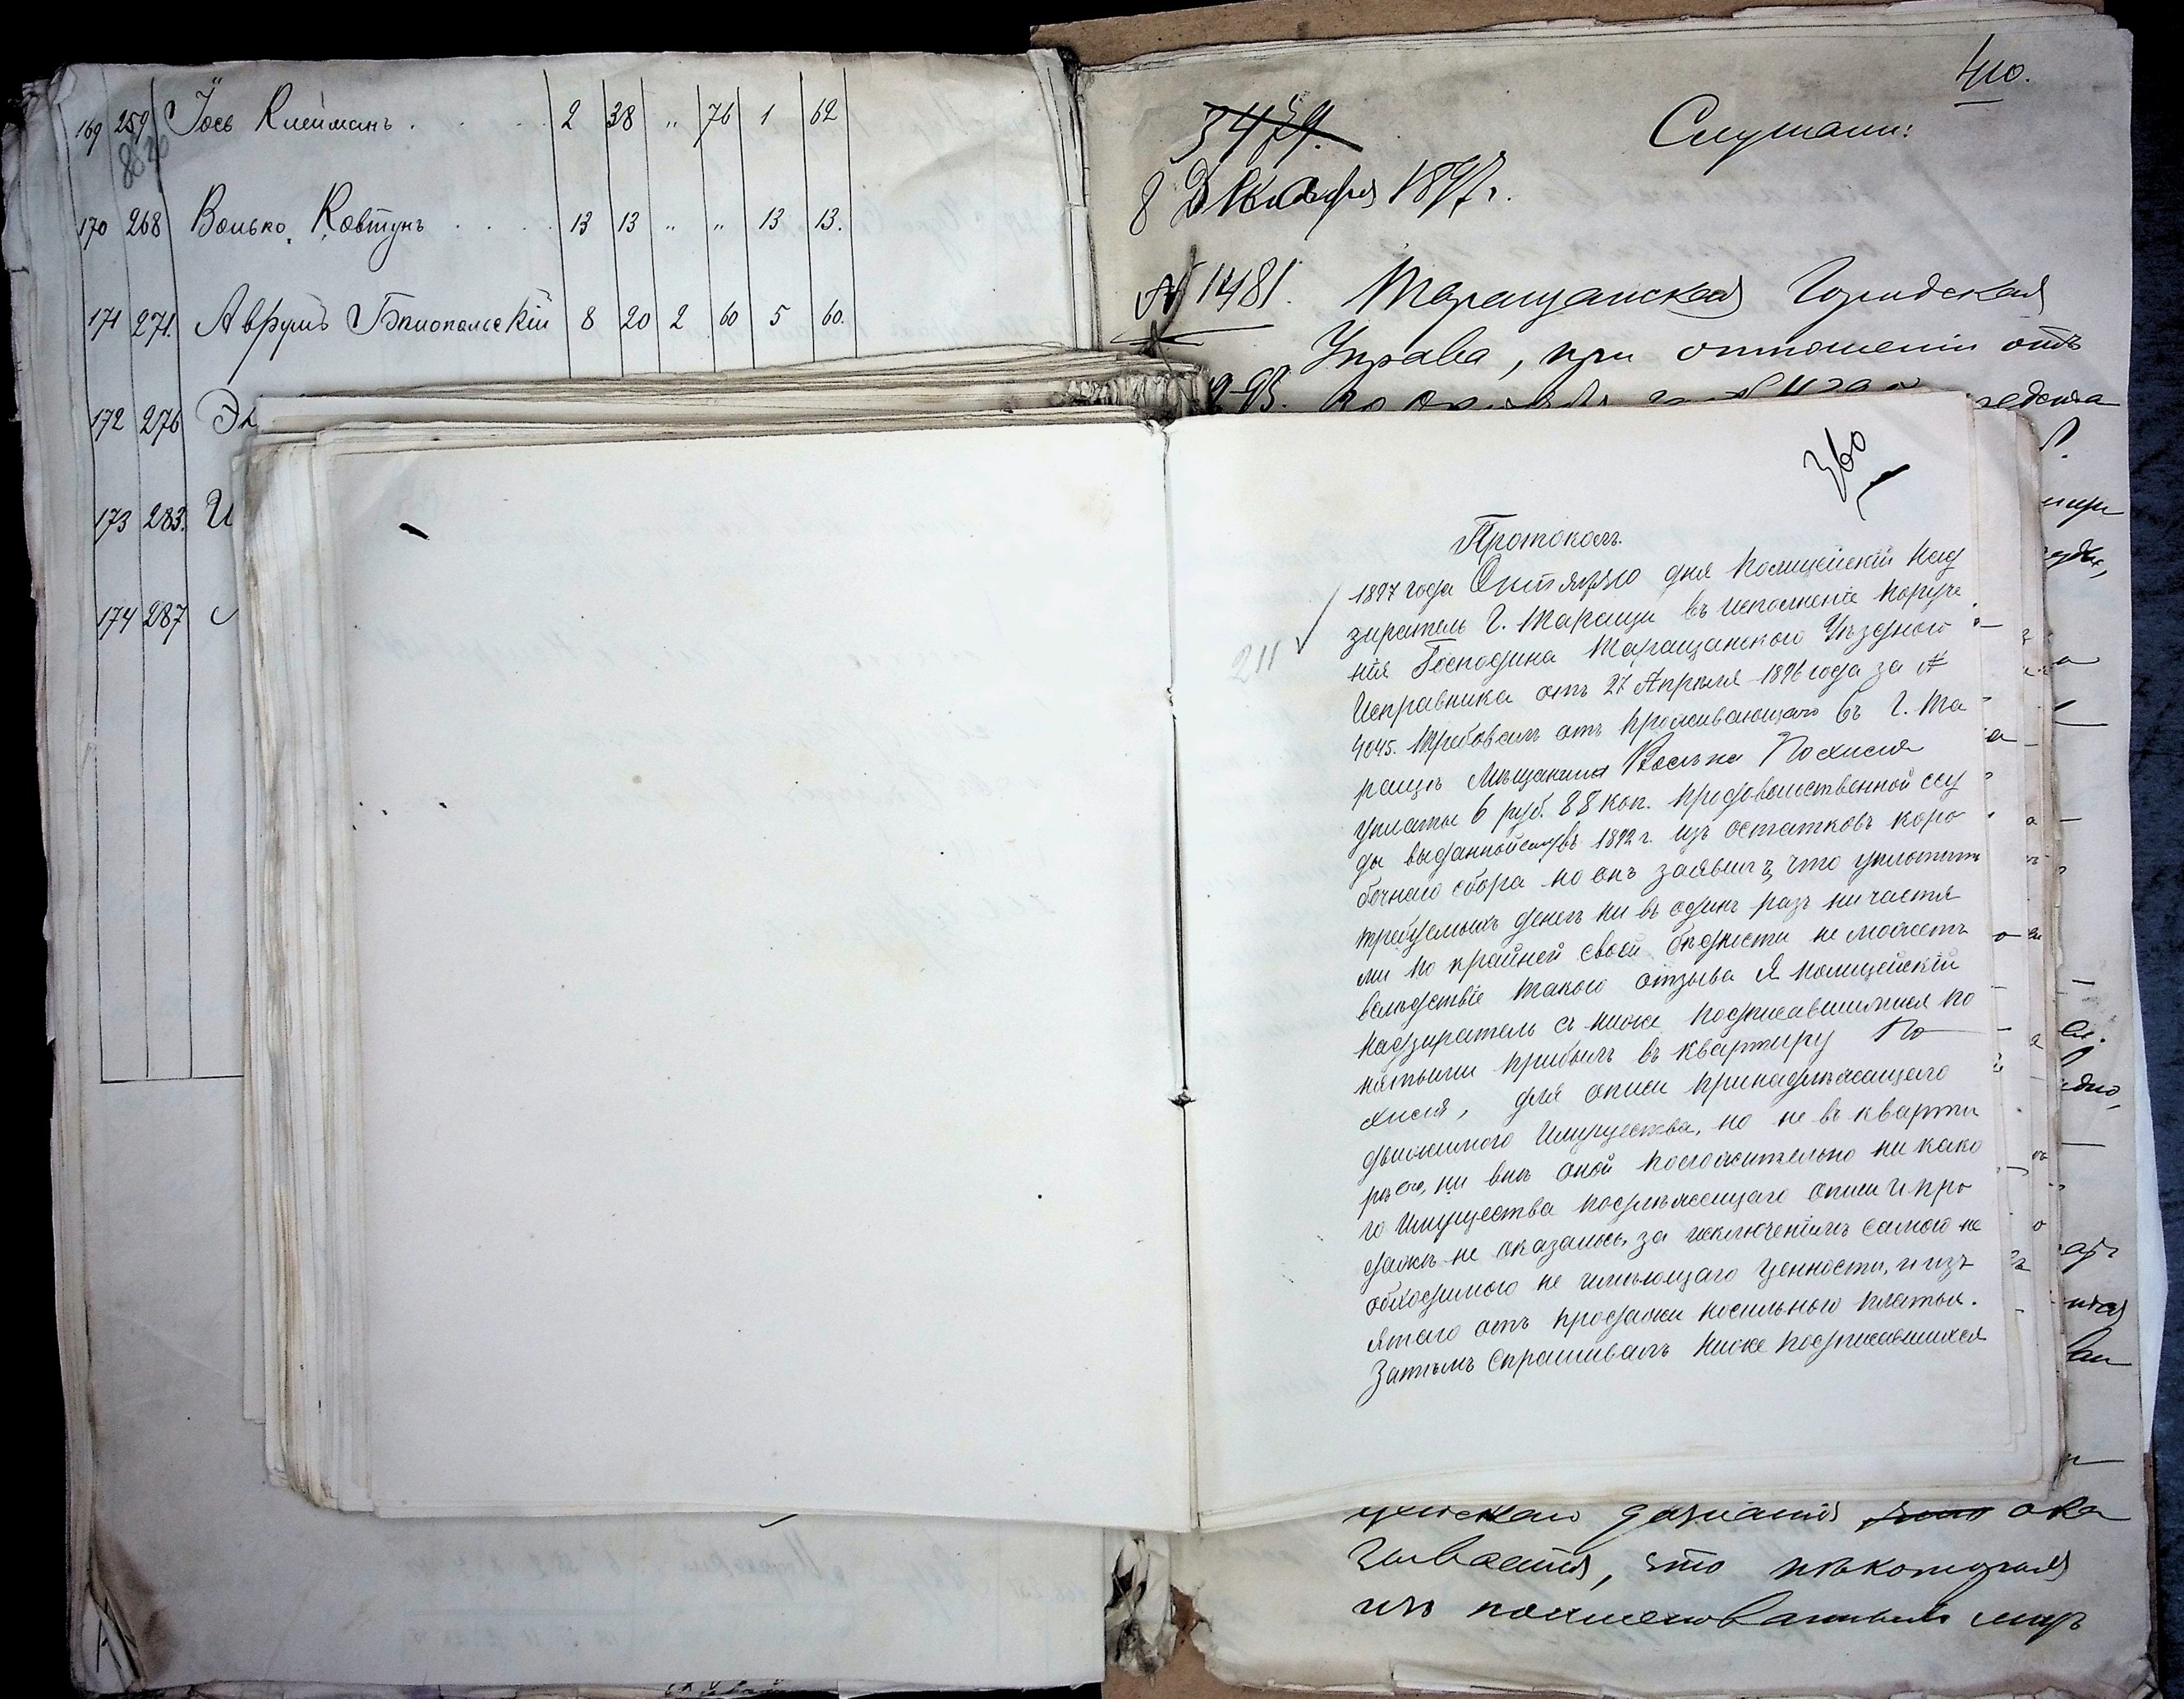 169 259 Іось Клейманъ . . . . 2 38 " 76 1 62
170 268 Волько Ковтунъ . . . . 13 13 " " 13 13.
171 271. Аврумъ Бялопольскій 8 20 2 60 5 60.
172 276
173 283. И
174 287
410.
3479.
Слушали:
8 Декабря 1897 г.
№ 1481. Таращанская Городская
Управа, при отношеніи отъ
360
Протоколъ.
211
1897 года Октября 10 дня Полицейскій Над
зиратель Г. Таращи въ исполненіе поруче
нія Господина Таращанскаго Уѣзднаго
Исправника отъ 27 Апрѣля 1896 года за №
4045. требовалъ отъ проживающаго въ г. Та
ращѣ мѣщанина Волька Похися
уплаты 6 руб. 88 коп. продовольственной ссу
ды выданной ему въ 1892 г. изъ остатковъ коро
бочнаго сбора но онъ заявилъ, что уплатить
требуемыхъ денегъ ни въ одинъ разъ ни частя
ми по крайней своей бѣдности не можетъ
вслѣдствіе такого отзыва Я полицейскій
надзиратель съ ниже подписавшимися по
нятыми прибылъ въ квартиру По
хися, для описи принадлежащаго
движимаго имущества, но не въ кварти
рѣ его, ни внѣ оной положительно ни како
го имущества подлежащаго описи и про
дажѣ не оказалось, за исключеніемъ самого не
обходимого не имѣющаго ценности, и изъ
ятаго отъ продажи носильнаго платья.
Затѣмъ спрашивалъ ниже подписавшихся
дознанія ока
зывается, что нѣкоторыя
изъ поименованныхъ лицъ